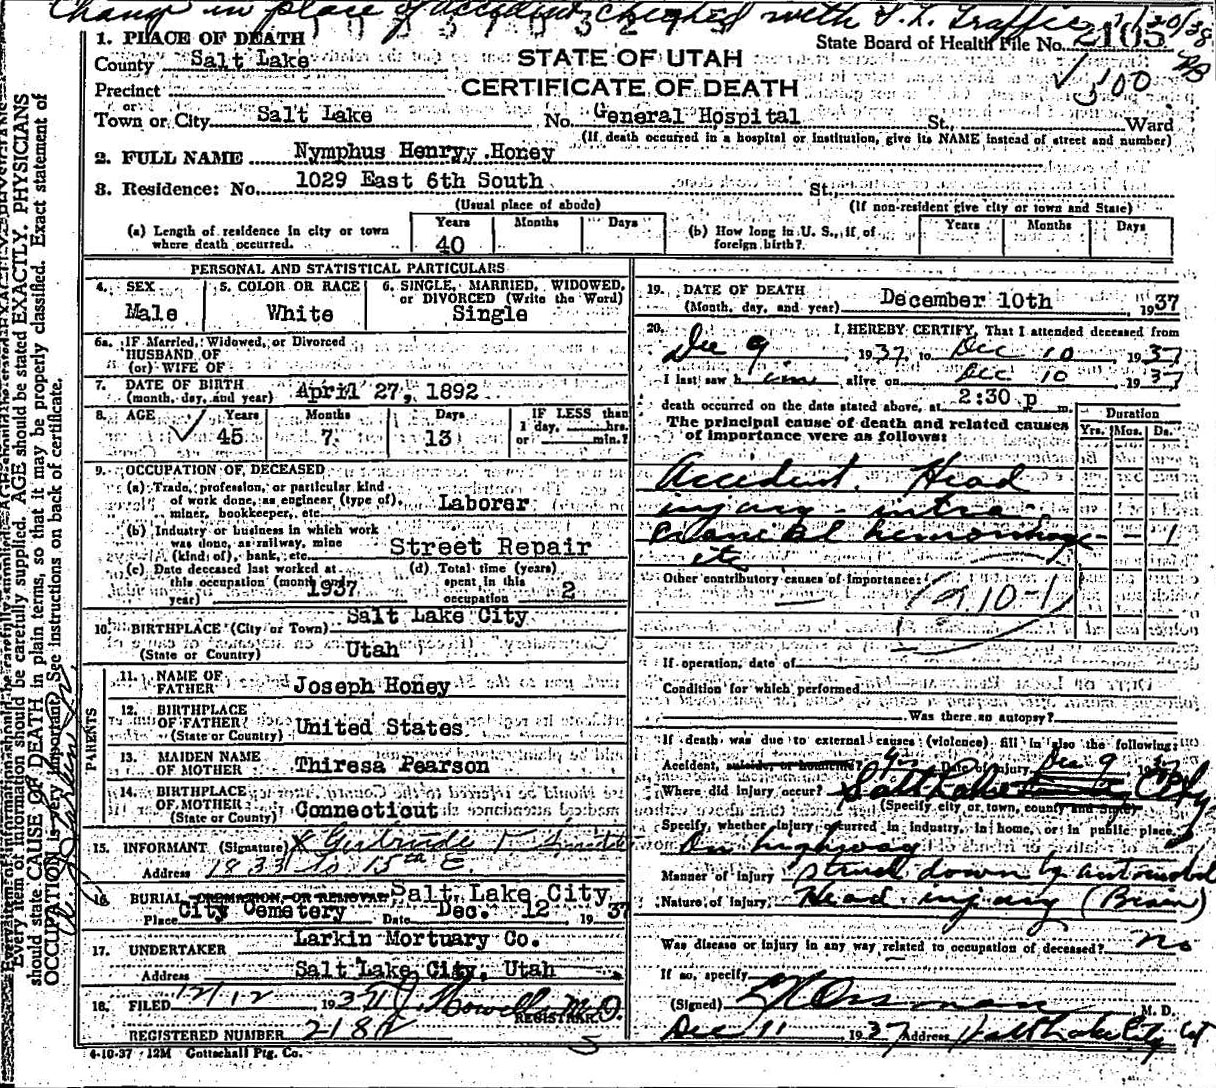 Change in place of accident checked with S.L. Traffic 1/20/38
1. PLACE OF DEATH
County Salt Lake
Precinct
or
Town or City Salt Lake
STATE OF UTAH
CERTIFICATE OF DEATH
State Board of Health File No. 2105
500
No. General Hospital St. Ward
(If death occurred in a hospital or institution, give its NAME instead of street and number)
2. FULL NAME Nymphus Henryy Honey
3. Residence: No. 1029 East 6th South St.
(Usual place of abode) (If non-resident give city or town and State)
(a) Length of residence in city or town where death occurred. Years 40 Months Days
(b) How long in U. S., if of foreign birth? Years Months Days
PERSONAL AND STATISTICAL PARTICULARS
4. SEX Male
5. COLOR OR RACE White
6. SINGLE, MARRIED, WIDOWED, or DIVORCED (Write the Word) Single
6a. IF Married, Widowed, or Divorced
HUSBAND OF
(or) WIFE OF
7. DATE OF BIRTH
(month, day, and year) April 27, 1892
8. AGE Years 45 Months 7 Days 13
IF LESS than
1 day, hrs.
or min.?
9. OCCUPATION OF DECEASED
(a) Trade, profession, or particular kind
of work done, as engineer (type of),
miner, bookkeeper, etc. Laborer
(b) Industry or business in which work
was done, as railway, mine
(kind of), bank, etc. Street Repair
(c) Date deceased last worked at
this occupation (month and
year) 1937
(d) Total time (years)
spent in this
occupation 2
10. BIRTHPLACE (City or Town) Salt Lake City
(State or Country) Utah
PARENTS
11. NAME OF
FATHER Joseph Honey
12. BIRTHPLACE
OF FATHER
(State or Country) United States
13. MAIDEN NAME
OF MOTHER Thiresa Pearson
14. BIRTHPLACE
OF MOTHER
(State or Country) Connecticut
15. INFORMANT (Signature) X Gertrude
Address 1833 So 15th E.
16. BURIAL, CREMATION, OR REMOVAL Salt Lake City
Place City Cemetery Date Dec. 12 1937
17. UNDERTAKER Larkin Mortuary Co.
Address Salt Lake City, Utah
18. FILED 12/12 1937 Howell M.D.
REGISTRAR
REGISTERED NUMBER 2182
4-10-37 12M Gottschall Ptg. Co.
19. DATE OF DEATH
(Month, day, and year) December 10th 1937
20. I HEREBY CERTIFY, That I attended deceased from
Dec 9, 1937, to Dec 10, 1937
I last saw him alive on Dec 10 1937
death occurred on the date stated above, at 2:30 p m.
The principal cause of death and related causes
of importance were as follows:
Duration
Yrs. Mos. Ds.
Accident. Head
injury - intra
cranial hemorrhage - - 1
etc
Other contributory causes of importance:
If operation, date of
Condition for which performed
Was there an autopsy?
If death was due to external causes (violence) fill in also the following:
Accident, suicide, or homicide? Yes Date of injury Dec 9 1937
Where did injury occur? Salt Lake City
(Specify city or town, county and State)
Specify, whether injury occurred in industry, in home, or in public place.
On highway
Manner of injury Struck down by automobile
Nature of injury Head injury (Brain)
Was disease or injury in any way related to occupation of deceased? No
If so, specify
(Signed) M. D.
Dec 11 1937 Address Salt Lake City Ut
Every item of information should be carefully supplied. AGE should be stated EXACTLY. PHYSICIANS
should state CAUSE OF DEATH in plain terms, so that it may be properly classified. Exact statement of
OCCUPATION is very important. See instructions on back of certificate.